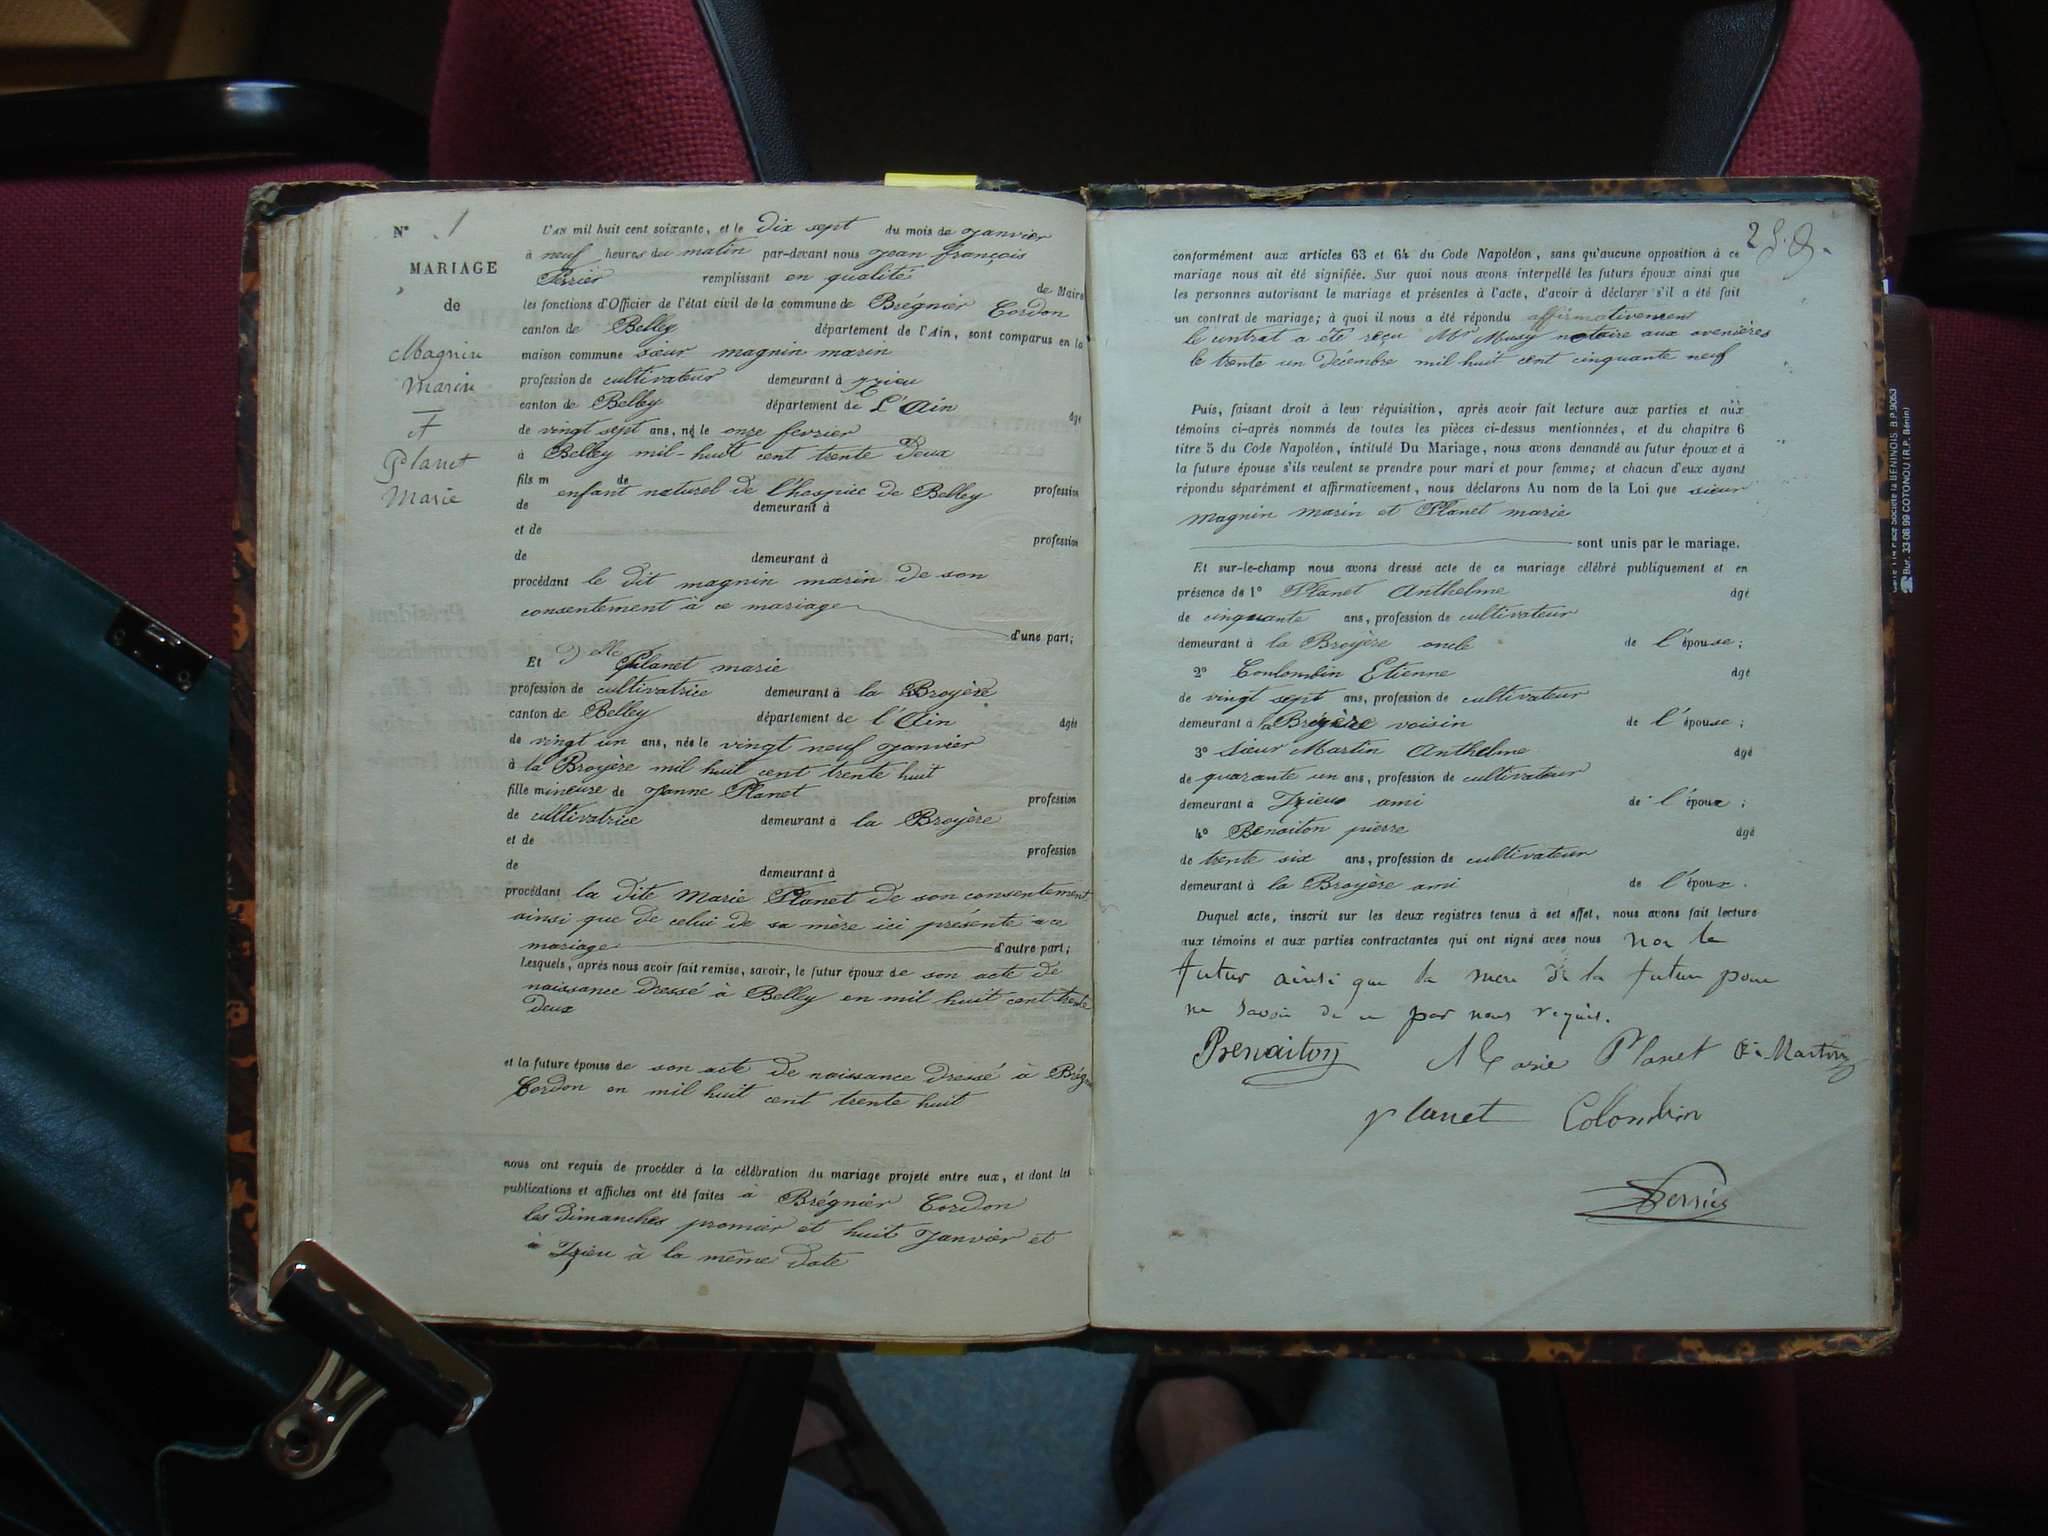 N° 1
MARIAGE
de
Magnin
Marin
&
Planet
Marie
L'AN mil huit cent soixante, et le dix sept du mois de janvier
à neuf heures du matin par-devant nous jean françois
Perrier remplissant en qualité de Maire
les fonctions d'Officier de l'état civil de la commune de Brégnier Cordon
canton de Belley département de l'Ain, sont comparus en la
maison commune sieur magnin marin
profession de cultivateur demeurant à yzieu
canton de Belley département de L'Ain âgé
de vingt sept ans, né le onze fevrier
à Belley mil-huit cent trente Deux
fils m de enfant naturel de l'hospice de Belley profession
de demeurant à
et de profession
de demeurant à
procédant le dit magnin marin de son
consentement à ce mariage
d'une part;
Et Dlle Planet marie
profession de cultivatrice demeurant à la Broyère
canton de Belley département de l'Ain âgée
de vingt un ans, née le vingt neuf janvier
à la Broyère mil huit cent trente huit
fille mineure de Janne Planet profession
de cultivatrice demeurant à la Broyère
et de profession
de demeurant à
procédant la dite Marie Planet de son consentement
ainsi que de celui de sa mère ici présente a ce
mariage d'autre part;
Lesquels, après nous avoir fait remise, savoir, le futur époux de son acte de
naissance dressé à Belley en mil huit cent trente
deux
et la future épouse de son acte de naissance dressé à Brégnier
Cordon en mil huit cent trente huit
nous ont requis de procéder à la célébration du mariage projeté entre eux, et dont les
publications et affiches ont été faites à Brégnier Cordon
les Dimanches premier et huit Janvier et
à Izieu à la même date
2
conformément aux articles 63 et 64 du Code Napoléon, sans qu'aucune opposition à ce
mariage nous ait été signifiée. Sur quoi nous avons interpellé les futurs époux ainsi que
les personnes autorisant le mariage et présentes à l'acte, d'avoir à déclarer s'il a été fait
un contrat de mariage; à quoi il nous a été répondu affirmativement
le contrat a été reçu Mr Musy notaire aux avenières
le trente un Décembre mil huit cent cinquante neuf
Puis, faisant droit à leur réquisition, après avoir fait lecture aux parties et aux
témoins ci-après nommés de toutes les pièces ci-dessus mentionnées, et du chapitre 6
titre 5 du Code Napoléon, intitulé Du Mariage, nous avons demandé au futur époux et à
la future épouse s'ils veulent se prendre pour mari et pour femme; et chacun d'eux ayant
répondu séparément et affirmativement, nous déclarons Au nom de la Loi que sieur
magnin marin et Planet marie
sont unis par le mariage.
Et sur-le-champ nous avons dressé acte de ce mariage célébré publiquement et en
présence de 1° Planet Anthelme âgé
de cinquante ans, profession de cultivateur
demeurant à la Broyère oncle de l'épouse;
2° Coulombin Etienne âgé
de vingt sept ans, profession de cultivateur
demeurant à la Broyère voisin de l'épouse;
3° sieur Martin Anthelme âgé
de quarante un ans, profession de cultivateur
demeurant à Izieu ami de l'époux;
4° Benaiton pierre âgé
de trente six ans, profession de cultivateur
demeurant à la Broyère ami de l'époux.
Duquel acte, inscrit sur les deux registres tenus à cet effet, nous avons fait lecture
aux témoins et aux parties contractantes qui ont signé avec nous non le
futur ainsi que la mere de la future pour
ne savoir de ce par nous requis.
Benaiton Marie Planet Martin
planet Colombin
Perrier
Société la BENINOIS. B.P. 9063
Bur. 33 08 99 COTONOU (R.P. Bénin)